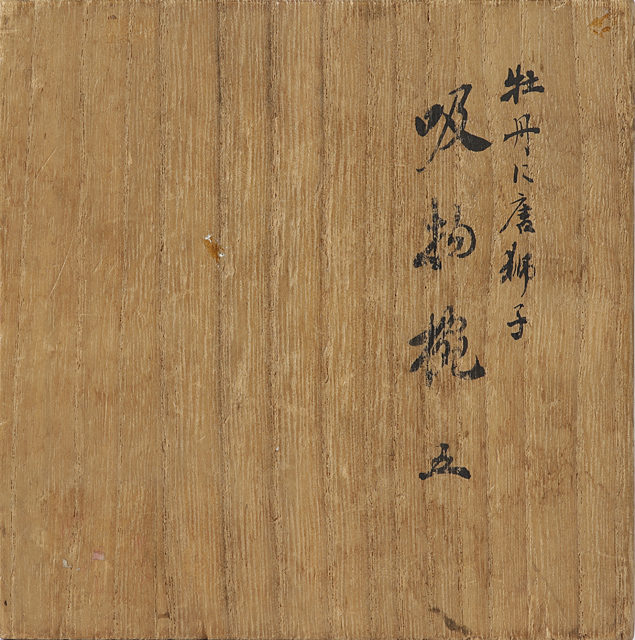 牡丹に唐獅子
吸物椀 五